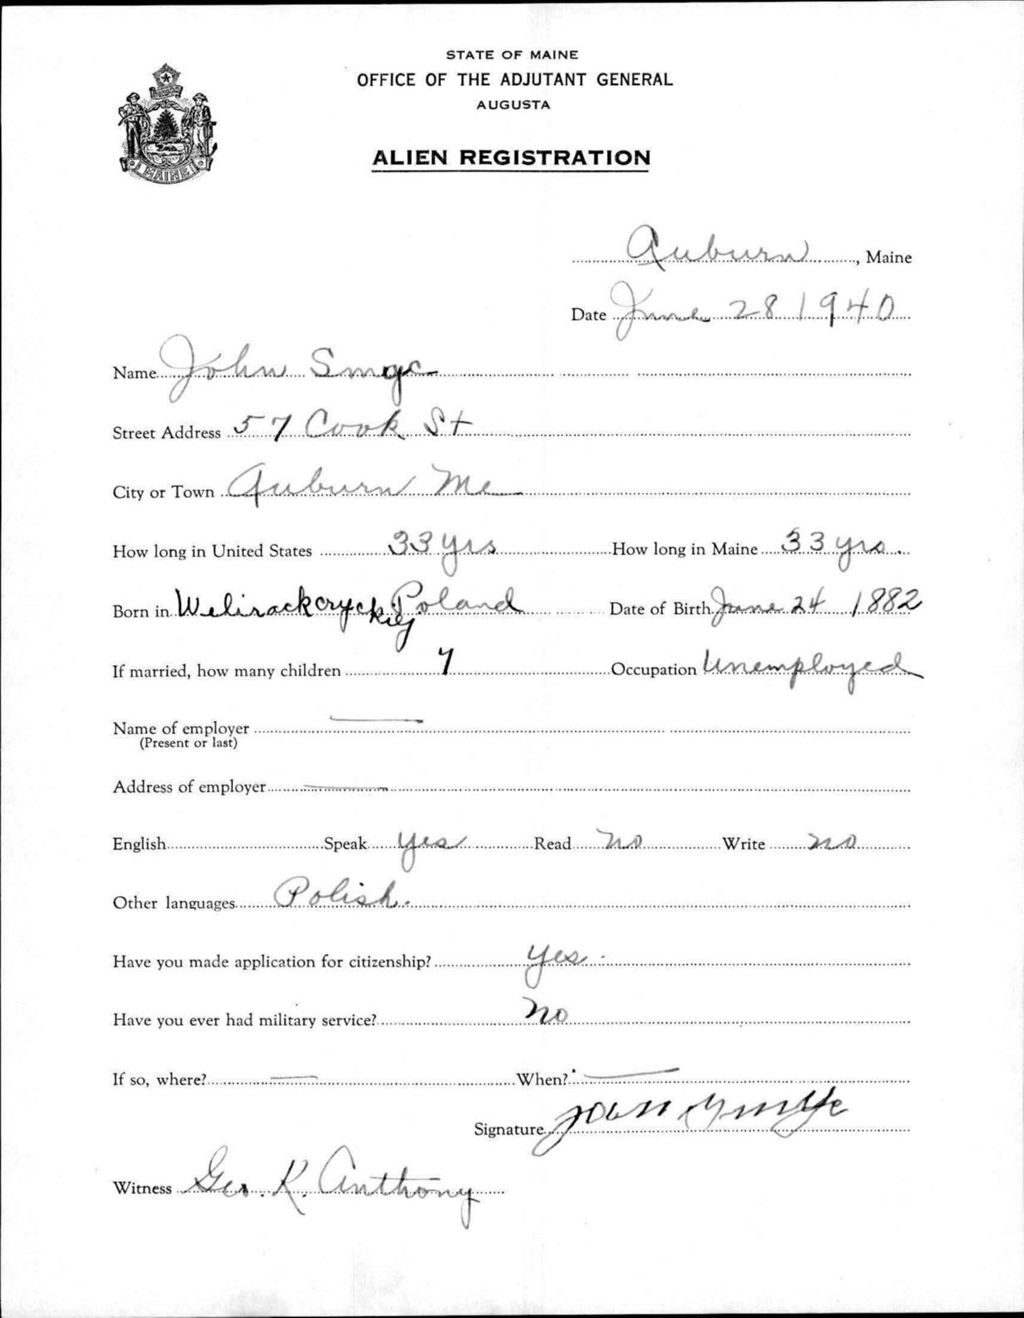 STATE OF MAINE
OFFICE OF THE ADJUTANT GENERAL
AUGUSTA
MAINE
ALIEN REGISTRATION
Auburn, Maine
Date June 28 1940
Name John Smyc
Street Address 57 Cook St
City or Town Auburn Me
How long in United States 33 yrs How long in Maine 33 yrs.
Born in Poland Date of Birth June 24 1882
If married, how many children 7 Occupation Unemployed
Name of employer
(Present or last)
Address of employer
English Speak Yes Read No Write no
Other languages Polish.
Have you made application for citizenship? Yes.
Have you ever had military service? No
If so, where? — When? —
Signature John
Witness Geo. K. Anthony